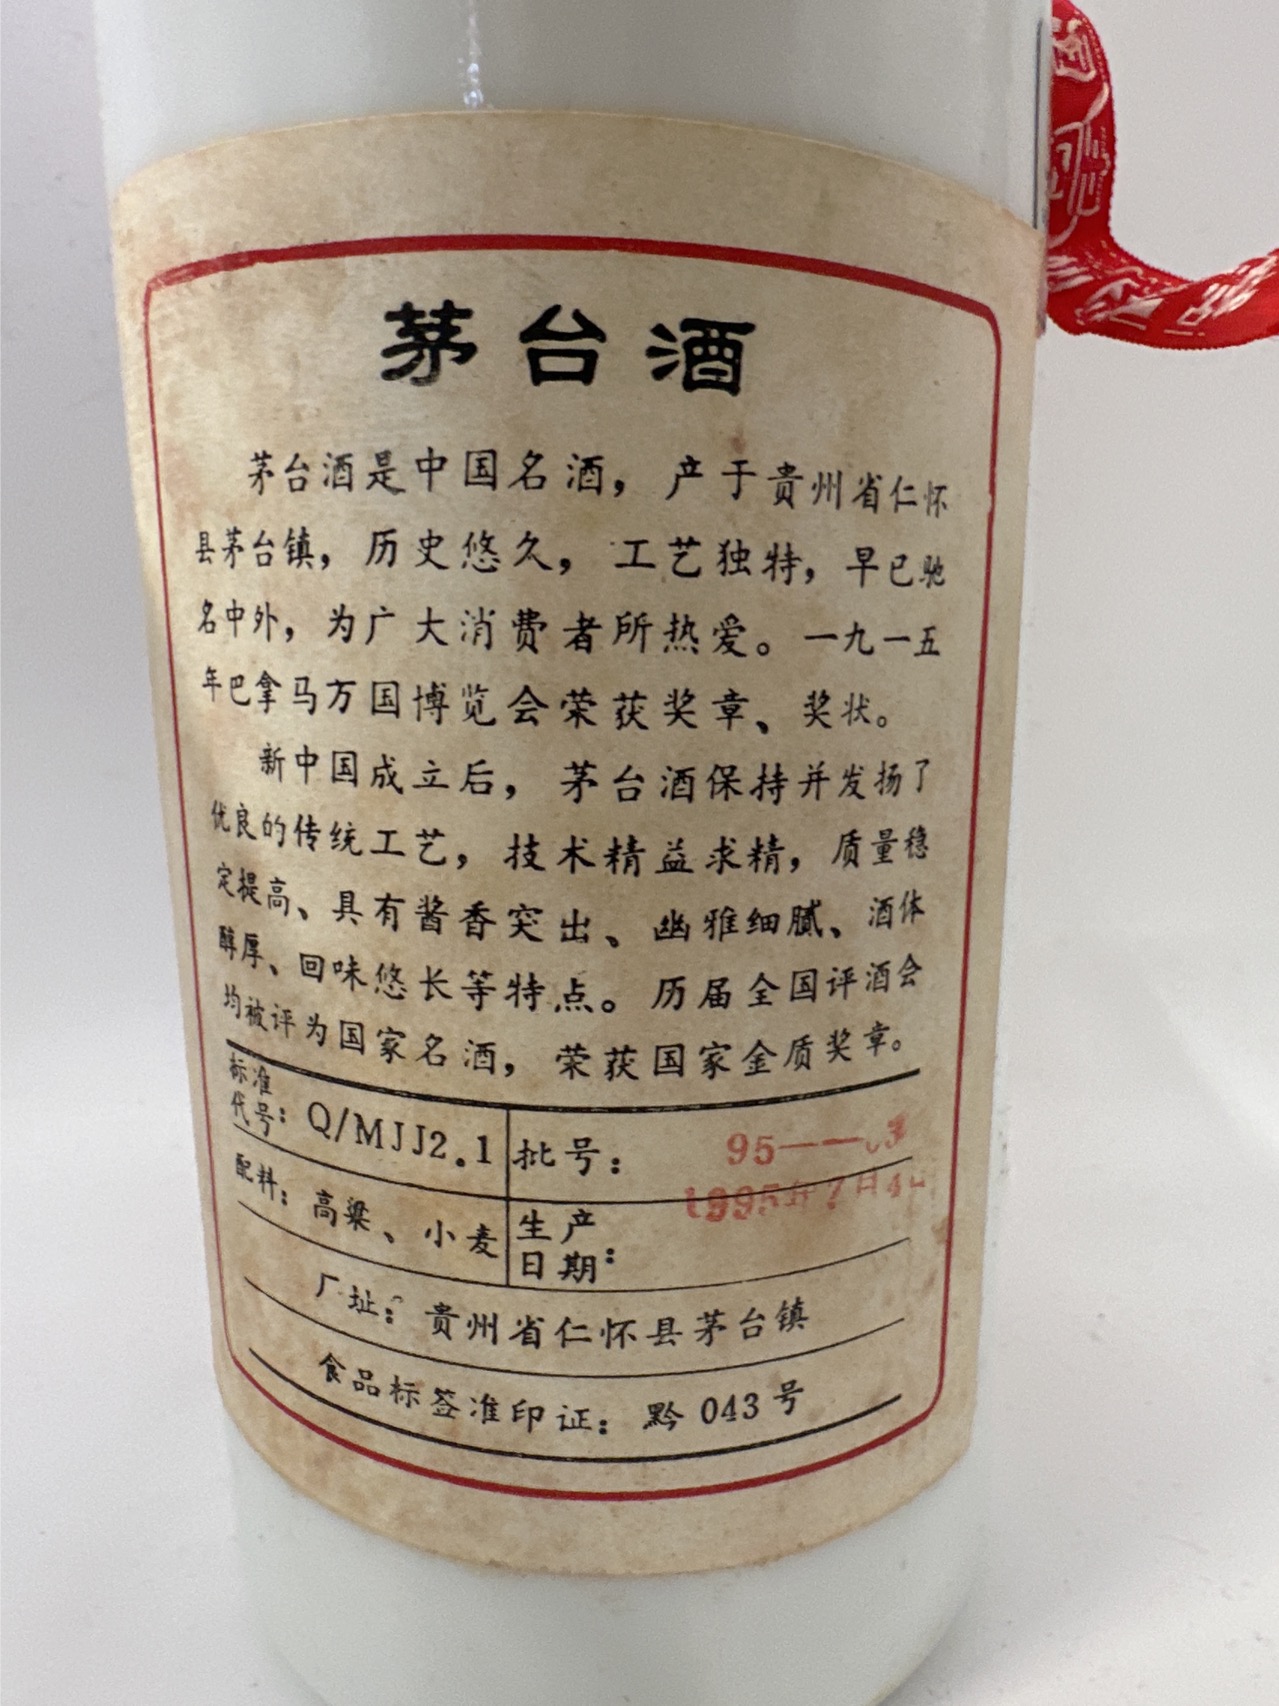 茅台酒
茅台酒是中国名酒，产于贵州省仁怀
县茅台镇，历史悠久，工艺独特，早已驰
名中外，为广大消费者所热爱。一九一五
年巴拿马万国博览会荣获奖章、奖状。
新中国成立后，茅台酒保持并发扬了
优良的传统工艺，技术精益求精，质量稳
定提高、具有酱香突出、幽雅细腻、酒体
醇厚、回味悠长等特点。历届全国评酒会
均被评为国家名酒，荣获国家金质奖章。
标准代号：Q/MJJ2.1
批号：95——03
配料：高粱、小麦
生产日期：1995年7月4日
厂址：贵州省仁怀县茅台镇
食品标签准印证：黔043号